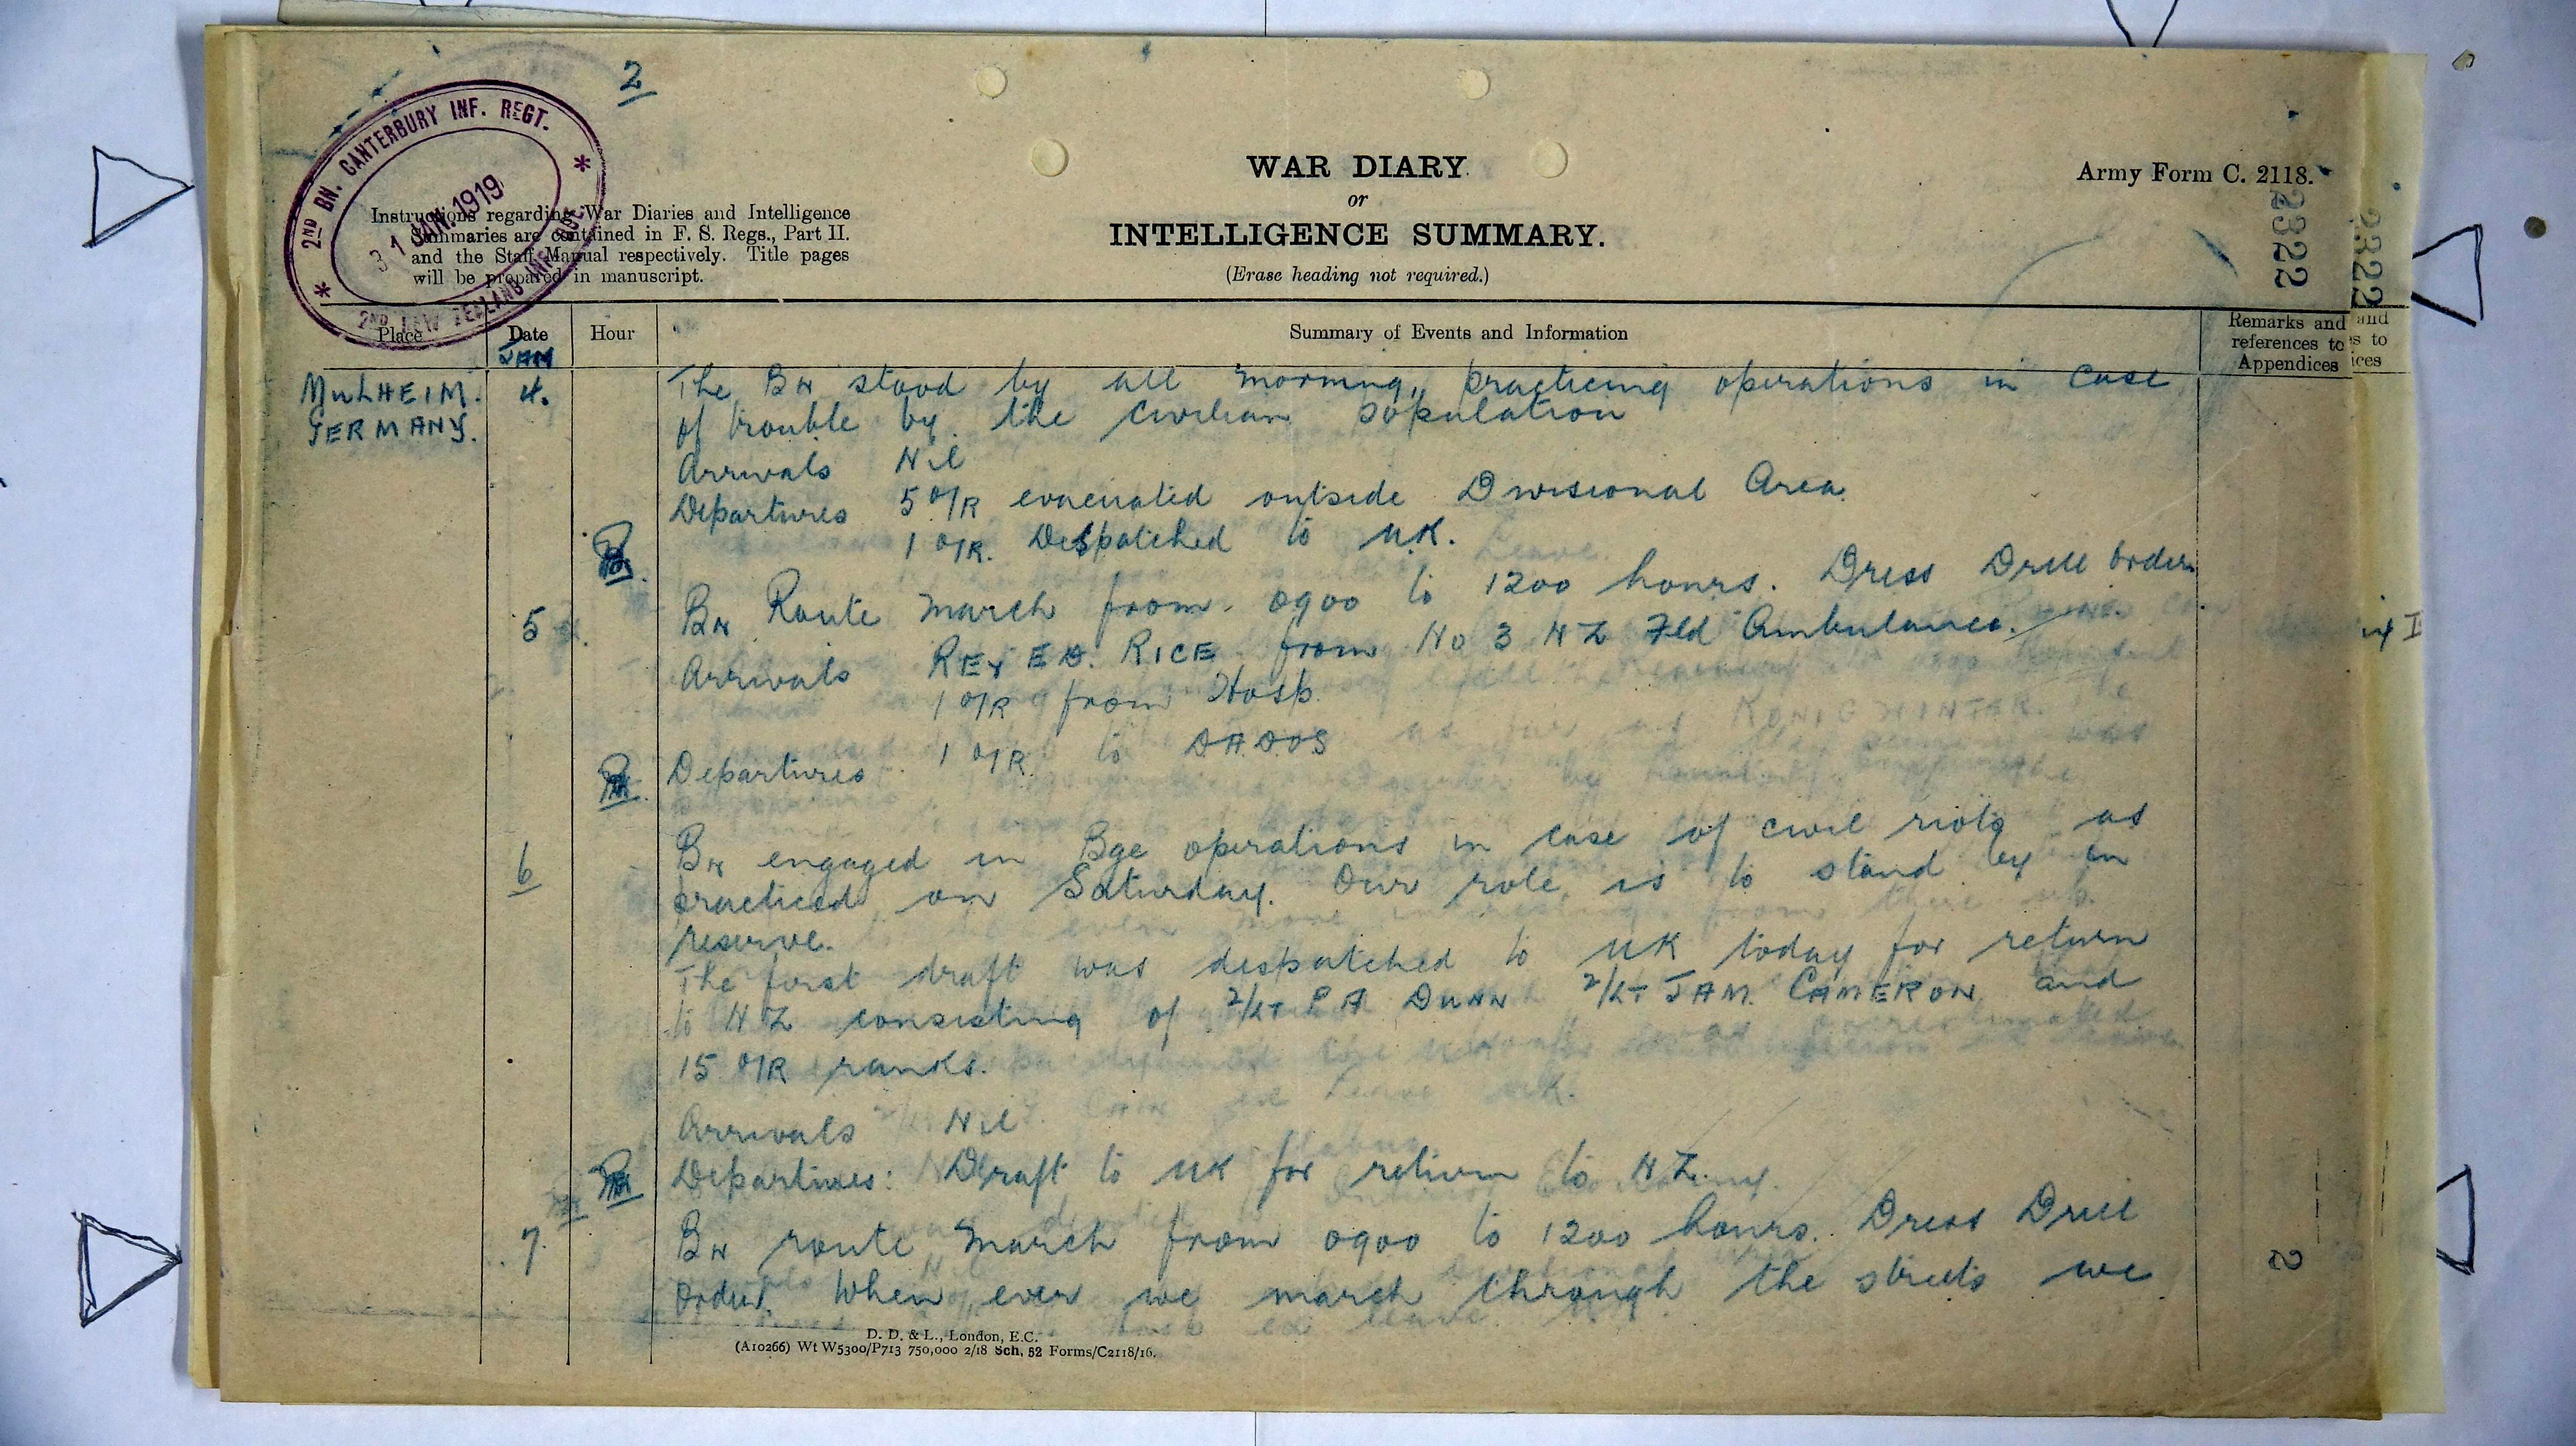 2
2ND BN. CANTERBURY INF. REGT.
31 JAN. 1919
2ND NEW ZEALAND INF. BDE.
WAR DIARY
or
INTELLIGENCE SUMMARY.
(Erase heading not required.)
Army Form C. 2118.
23322
23322
Instructions regarding War Diaries and Intelligence
Summaries are contained in F. S. Regs., Part II.
and the Staff Manual respectively. Title pages
will be prepared in manuscript.
Place Date Hour Summary of Events and Information Remarks and references to Appendices
JAN
MULHEIM. 4. The BN stood by all morning, practicing operations in case
GERMANY. of trouble by the civilian population
Arrivals Nil
Departures 5 O/R evacuated outside Divisional Area.
1 O/R. Despatched to UK.
5 BN Route March from 0900 to 1200 hours. Dress Drill order
Arrivals REV E D. RICE from No 3 NZ Fld Ambulance.
1 O/R from Hosp.
Departures 1 O/R. to DADOS
6 BN engaged in Bge operations in case of civil riots as
practiced on Saturday. Our role is to stand by in
reserve.
The first draft was despatched to UK today for return
to NZ consisting of 2/LT P A DUNN 2/LT JAM. CAMERON and
15 O/R ranks.
Arrivals Nil
Departures: Draft to UK for return to NZ.
7. BN route march from 0900 to 1200 hours. Dress Drill
order. When ever we march through the streets we
2
D. D. & L., London, E.C.
(A10266) Wt W5300/P713 750,000 2/18 Sch. 52 Forms/C2118/16.